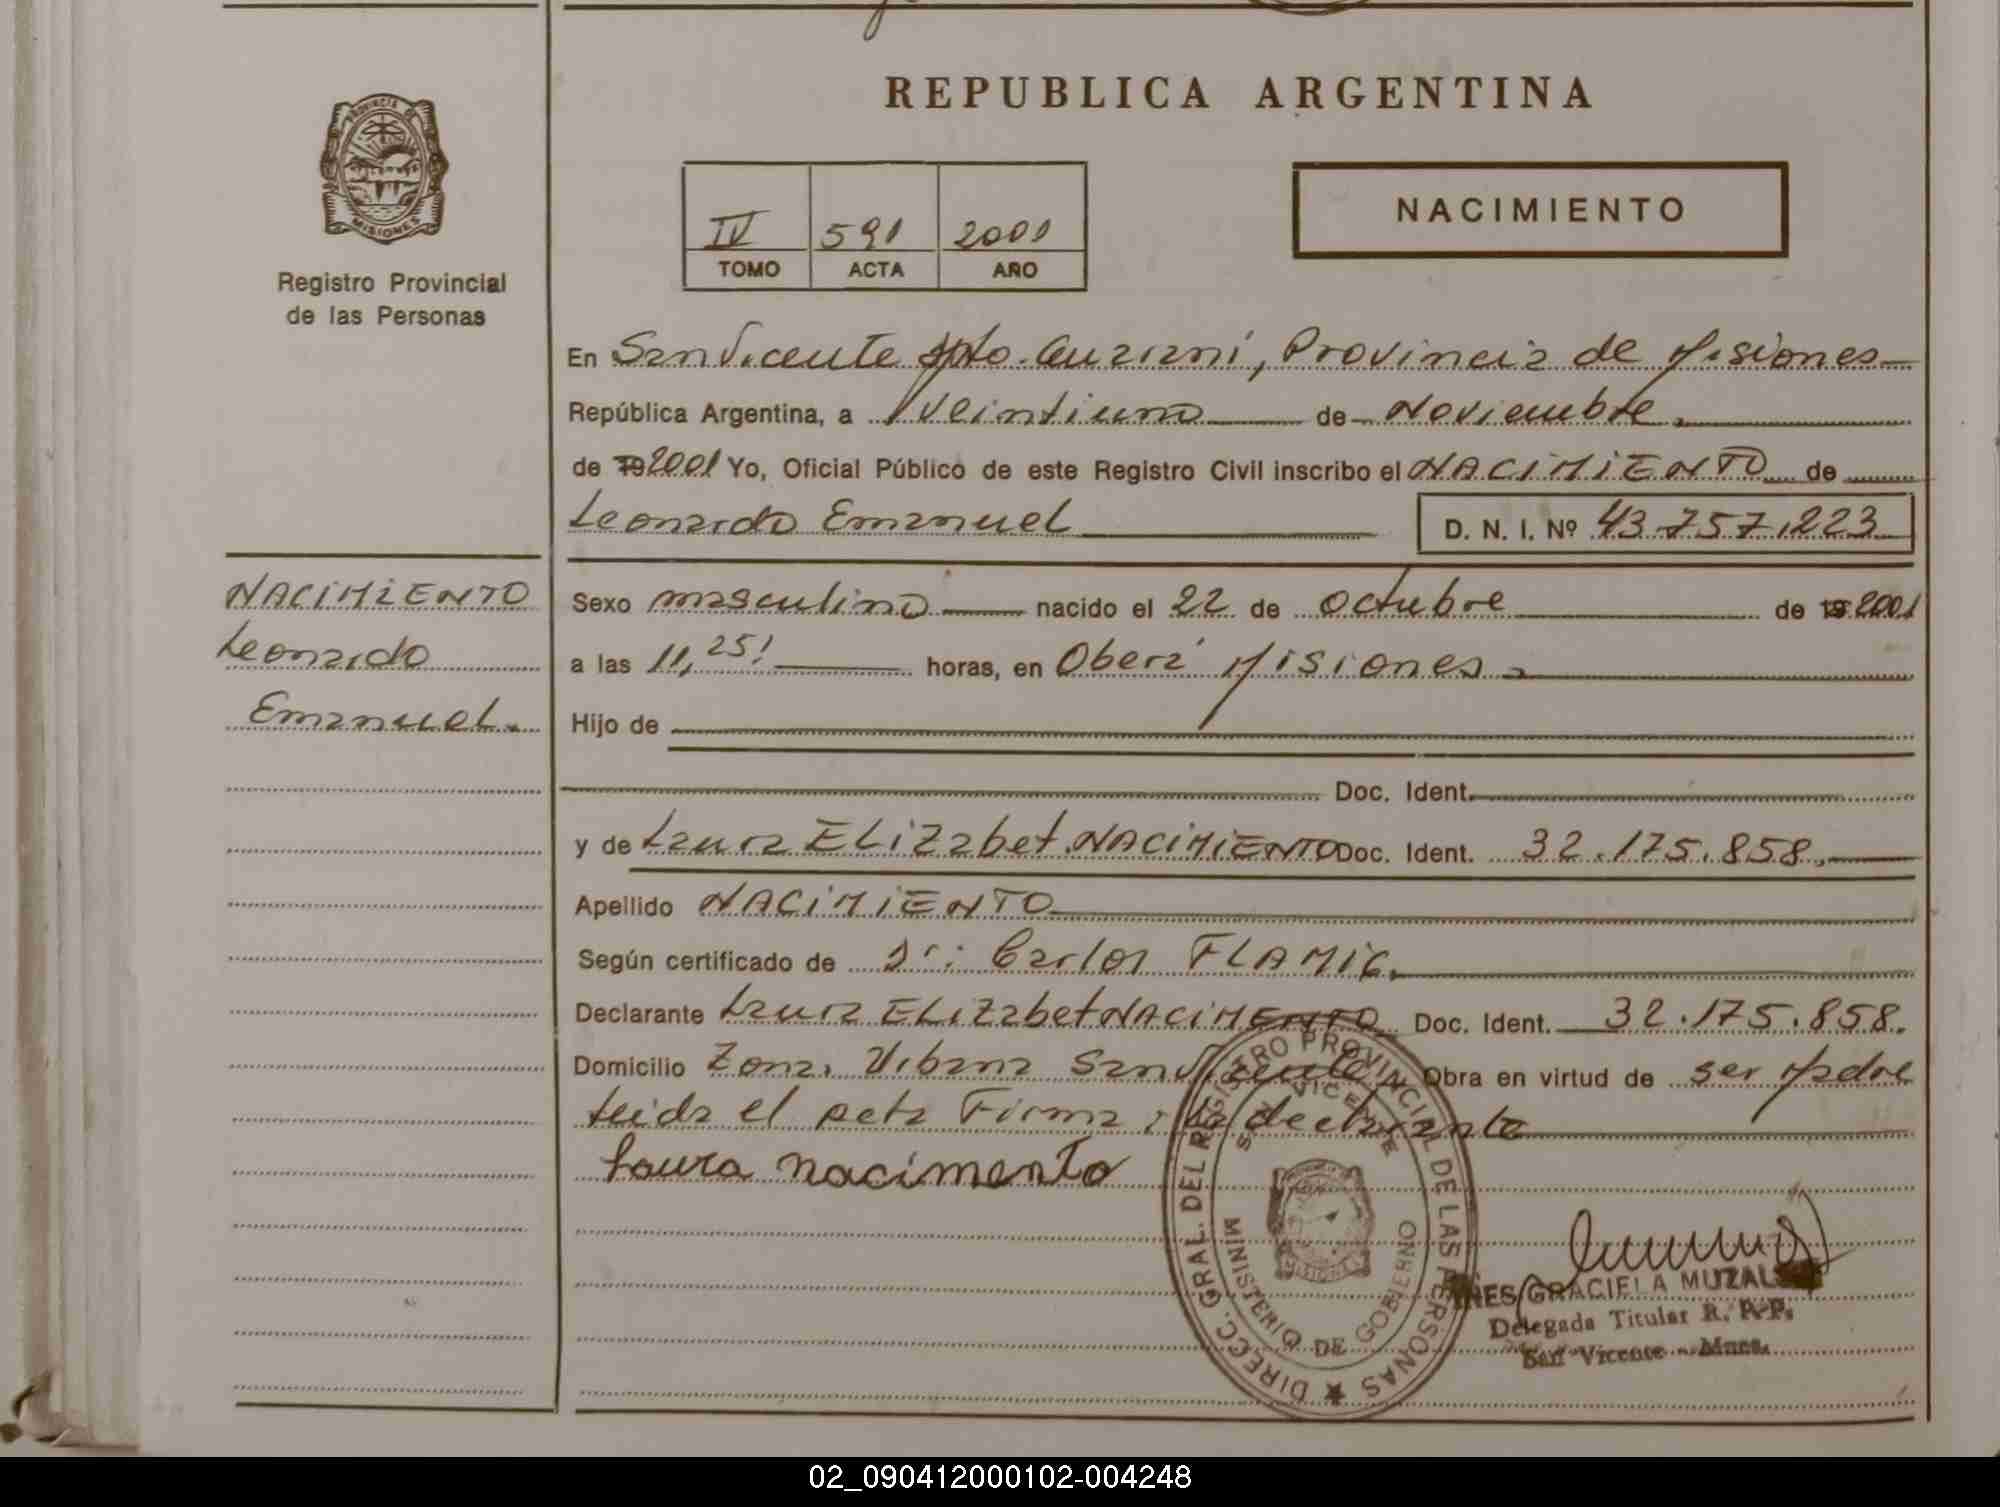 REPUBLICA ARGENTINA
PROVINCIA DE MISIONES
Registro Provincial
de las Personas
IV 591 2001
TOMO ACTA AÑO
NACIMIENTO
En San Vicente Dpto. Guaraní, Provincia de Misiones
República Argentina, a Veintiuno de Noviembre
de 19 2001 Yo, Oficial Público de este Registro Civil inscribo el NACIMIENTO de
Leonardo Emanuel D. N. I. Nº 43.757.223
NACIMIENTO
Leonardo
Emanuel.
Sexo masculino nacido el 22 de octubre de 19 2001
a las 11,25! horas, en Oberá Misiones
Hijo de
Doc. Ident.
y de Laura ELIZabet NACIMIENTO Doc. Ident. 32.175.858.
Apellido NACIMIENTO
Según certificado de Dr: Carlos FLAMIG.
Declarante Laura ELIZabet NACIMIENTO Doc. Ident. 32.175.858.
Domicilio Zona Urbana San Vicente Obra en virtud de ser Madre
Leida el acta Firma la declarante
Laura nacimento
DIRECC. GRAL. DEL REGISTRO PROVINCIAL DE LAS PERSONAS
SAN VICENTE
MISIONES
MINISTERIO DE GOBIERNO
INES GRACIELA
Delegada Titular R. P. P.
San Vicente - Mnes.
02_090412000102-004248